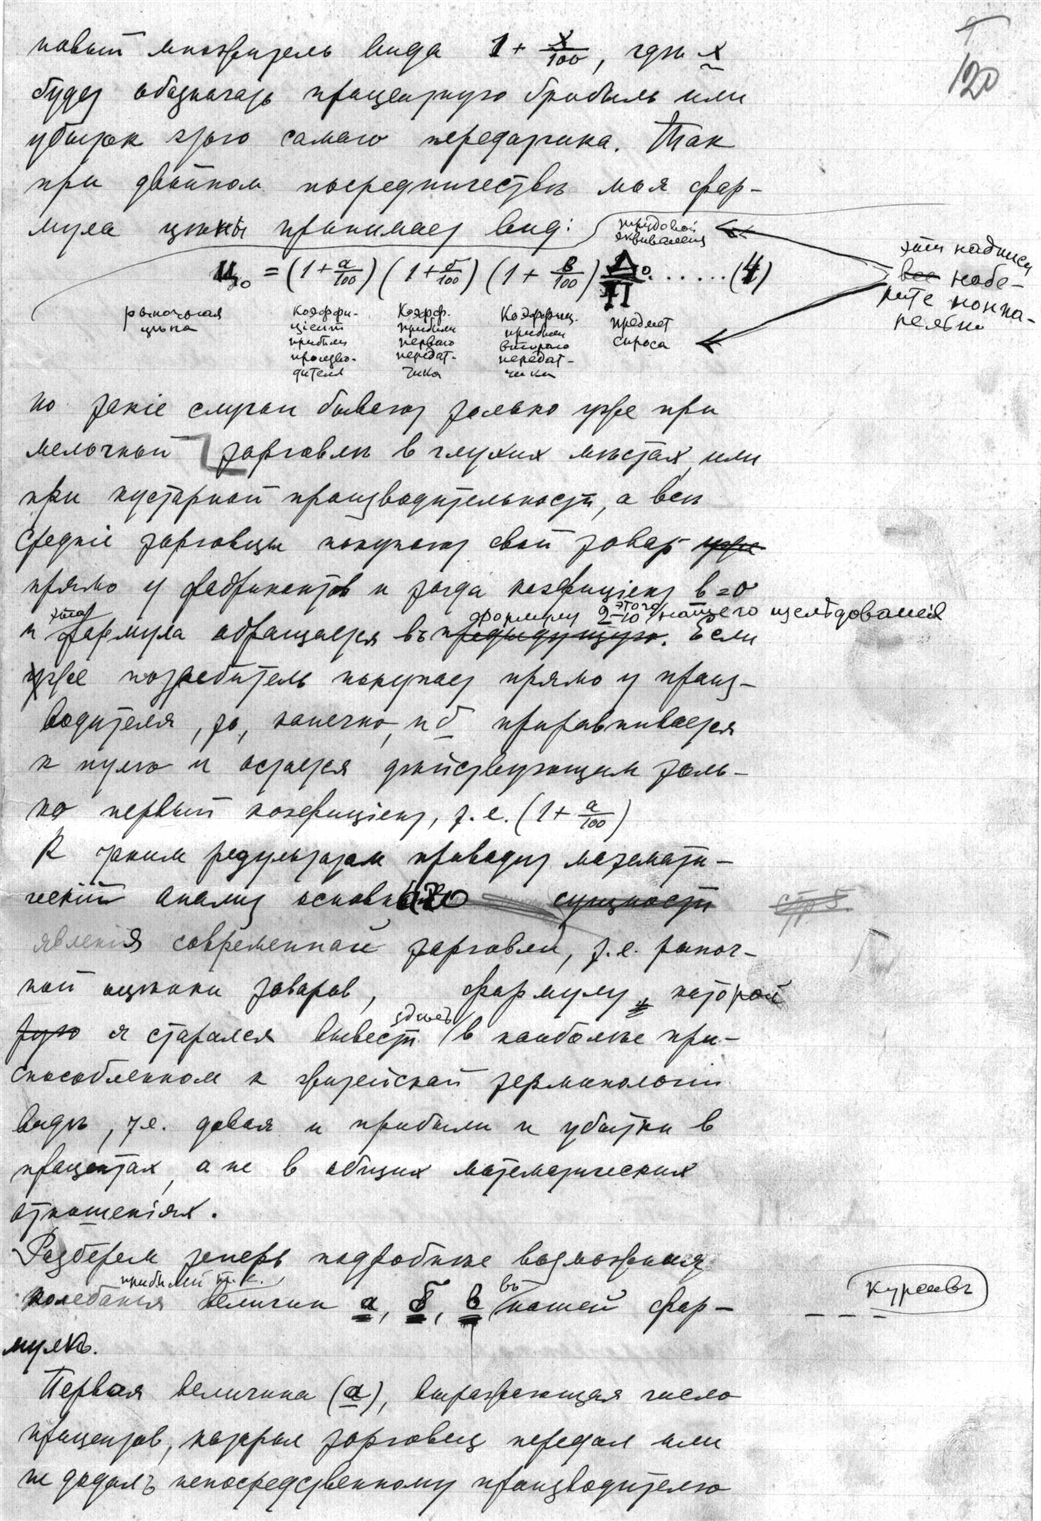 120
новый множитель вида 1 + x/100, где x
будет обозначать процентную прибыль или
убыток этого самаго передатчика. Так
при двойном посредничестве моя фор-
мула цены принимает вид:
трудовой
эквивалент
Ц₀ = (1 + а/100) (1 + б/100) (1 + в/100) Д₀/П . . . . . . (4)
рыночная
цена
Коэффи-
циент
прибыли
произво-
дителя
Коэфф.
прибыли
перваго
передат-
чика
Коэффиц.
прибыли
второго
передат-
чика
предмет
спроса
эти надписи
все набе-
рите нонпа-
релью
но такіе случаи бывают только уже при
мелочной торговле в глухих местах, или
при кустарной производительности, а все
средніе торговцы покупают свой товар уже
прямо у фабрикантов и тогда коэфиціент в = 0
эта формулу 2-10 этого нашего изследования
и формула обращается въ предыдущую. Если
уже потребитель покупает прямо у произ-
водителя, то, конечно, и б приравнивается
к нулю и остается действующим толь-
ко первый коэфиціент, т. е. (1 + а/100)
К таким результатам приводит математи-
ческій анализ основного сущности стр 5
явленія современной торговли, т. е. рыноч-
ной оценки товаров, формулу, которой
рую я старался вывести здесь в наиболее при-
способленном к житейской терминологіи
виде, т. е. давая и прибыли и убытки в
процентах, а не в общих математических
отношеніях.
Разберем теперь подробнее возможныя
прибылей т. е.
колебанія величин а, б, в въ нашей фор-
муле.
Курсивъ
Первая величина (а), выражающая число
процентов, которыя торговец передал или
не додалъ непосредственному производителю